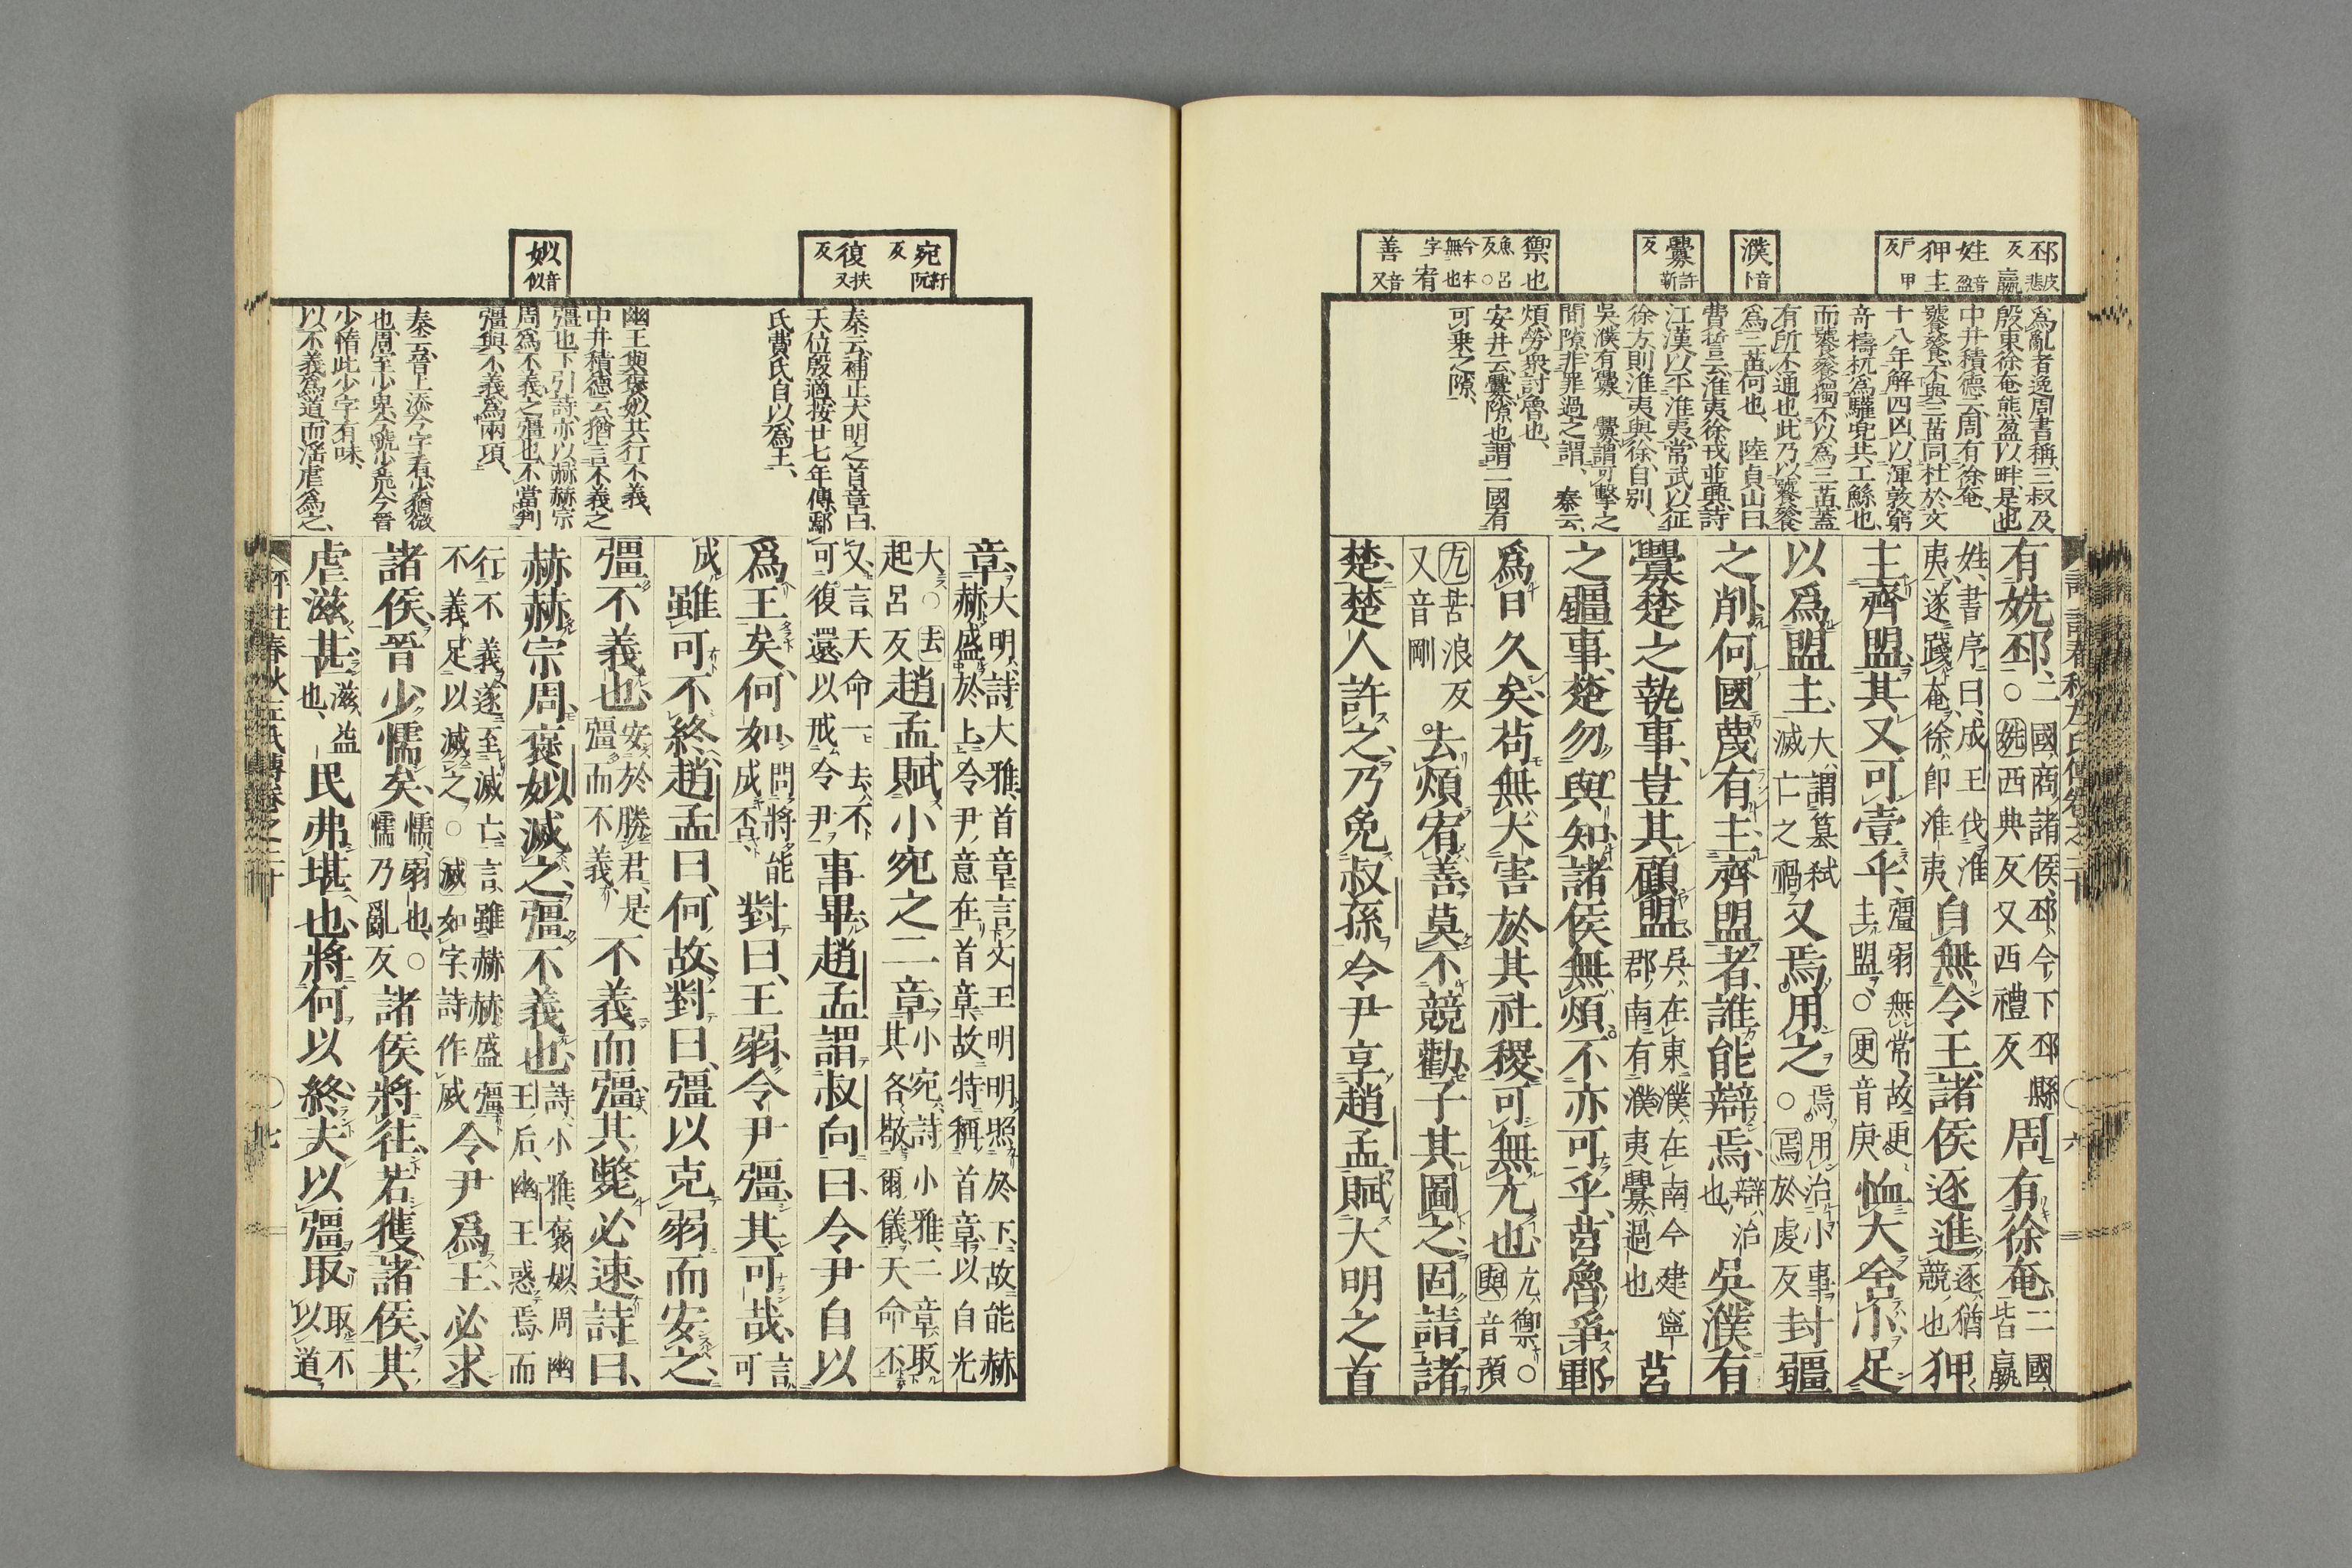 邳 皮悲反
嬴
姓 音盈
狎主
戶甲反
濮 音卜
釁 許靳反
禦也 魚呂反○今本無也字
宥善 音又
爲亂者逸周書稱三叔及
殷東徐奄熊盈以畔是也
中井積德云周有徐奄
饕餮不與三苗同杜於文
十八年解四凶以渾敦窮
奇檮杌爲驩兜共工鯀也
而饕餮獨不以爲三苗蓋
有所不通也此乃以饕餮
爲三苗何也 陸貞山曰
費誓云淮夷徐戎並興詩
江漢以平淮夷常武以征
徐方則淮夷與徐自別
吳濮有釁 釁謂可擊之
間隙非罪過之謂 秦云
煩勞衆討魯也
安井云釁隙也謂二國有
可乗之隙
有姺邳二國商諸侯邳今下邳縣○姺西典反又西禮反周有徐奄二國皆嬴
姓書序曰成王伐淮夷遂踐奄徐卽淮夷自無令王諸侯逐進逐猶競也狎
主齊盟其又可壹乎彊弱無常故更主盟○更音庚恤大舍小足
以爲盟主大謂篡弑滅亡之禍又焉用之焉用治小事○焉於虔反封疆
之削何國蔑有主齊盟者誰能辯焉辯治也吳濮有
釁楚之執事豈其顧盟吳在東濮在南今建寧郡南有濮夷釁過也莒
之疆事楚勿與知諸侯無煩不亦可乎莒魯爭鄆
爲日久矣苟無大害於其社稷可無亢也亢禦○與音預
亢苦浪反又音剛去煩宥善莫不競勸子其圖之固請諸
楚楚人許之乃免叔孫令尹享趙孟賦大明之首
六
宛 紆阮反
復 扶又反
姒 音似
秦云補正大明之首章曰
天位殷適按廿七年傳鄢
氏費氏自以爲王
幽王與褒姒共行不義
中井積德云猶言不義之
彊也下引詩亦以赫赫宗
周爲不義之彊也不當判
彊與不義爲兩項
秦云晉上添今字看少猶微
也周室少卑今虢少荒今晉
少惰此少字有味
以不義爲道而淫虐爲之
章大明詩大雅首章言文王明明照於下故能赫赫盛於上令尹意在首章故特稱首章以自光
大○去起呂反趙孟賦小宛之二章小宛詩小雅二章取其各敬爾儀天命不
又言天命一去不可復還以戒令尹事畢趙孟謂叔向曰令尹自以
爲王矣何如問將能成否對曰王弱令尹彊其可哉言可
成雖可不終趙孟曰何故對曰彊以克弱而安之
彊不義也安於勝君是彊而不義不義而彊其斃必速詩曰
赫赫宗周褒姒滅之彊不義也詩小雅褒姒周幽王后幽王惑焉而
行不義遂至滅亡言雖赫赫盛彊不義足以滅之○滅如字詩作烕令尹爲王必求
諸侯晉少懦矣懦弱也○懦乃亂反諸侯將往若獲諸侯其
虐滋甚滋益也民弗堪也將何以終夫以彊取取不以道
評註春秋左氏傳卷之二十
七